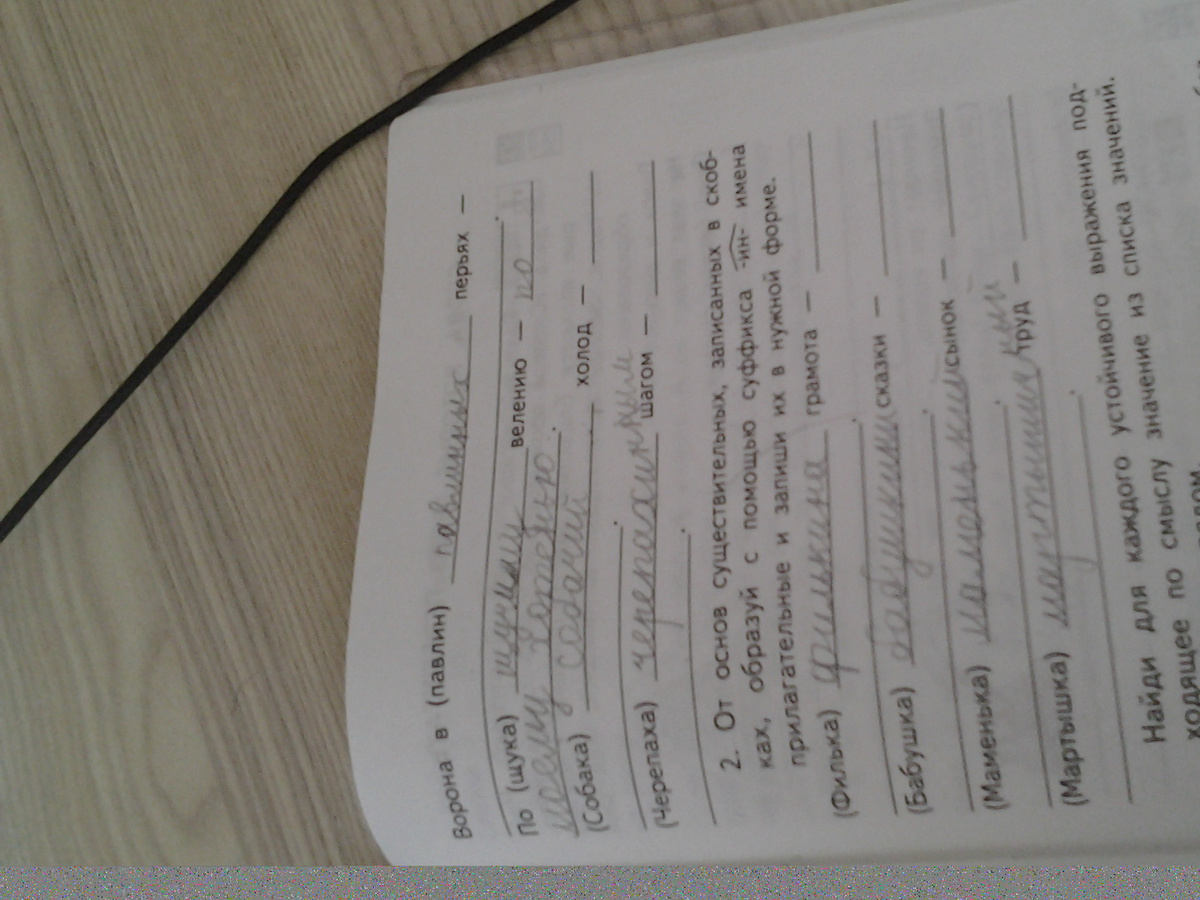 Ворона в (павлин) павлиньих перьях —
По (щука) щучьему велению — по
моему хотению.
(Собака) собачий холод —
(Черепаха) черепашьим шагом —
2. От основ существительных, записанных в скоб-
ках, образуй с помощью суффикса -ин- имена
прилагательные и запиши их в нужной форме.
(Филька) филькина грамота —
(Бабушка) бабушкины сказки —
(Маменька) маменькин сынок —
(Мартышка) мартышкин труд —
Найди для каждого устойчивого выражения под-
ходящее по смыслу значение из списка значений.